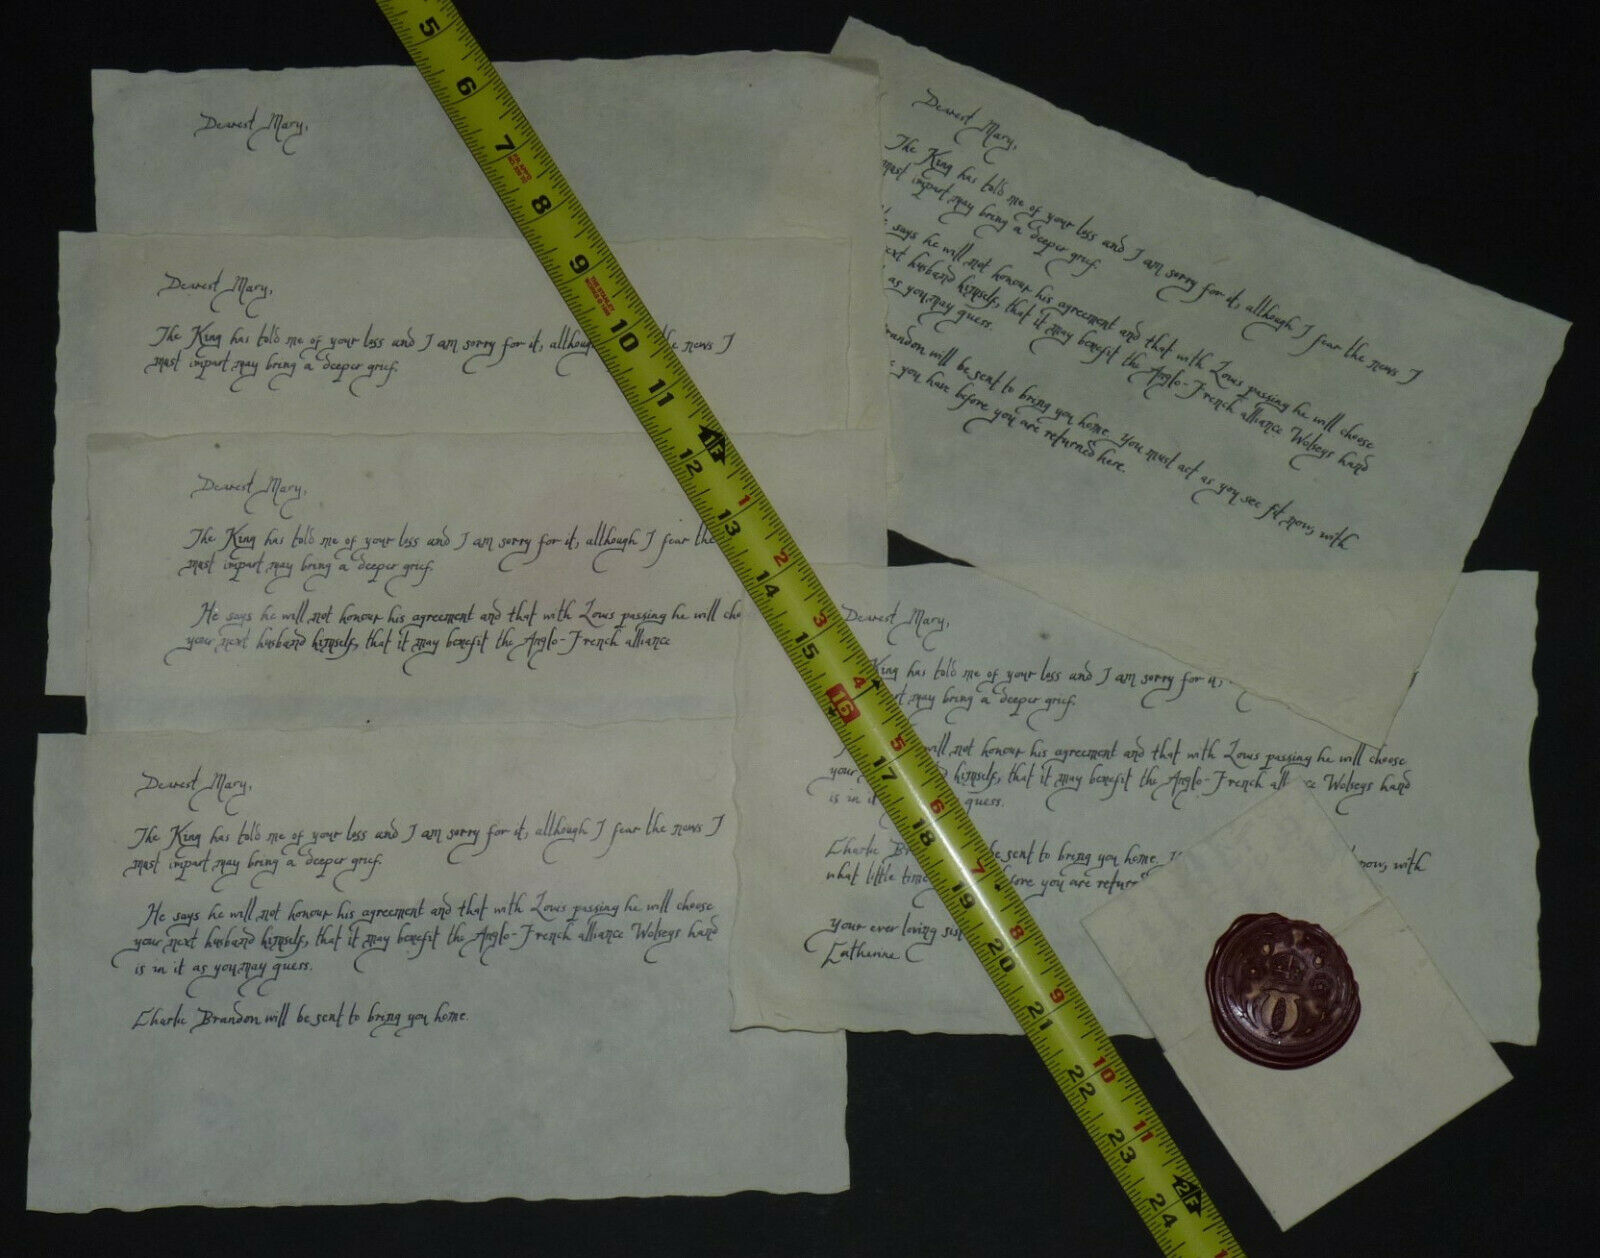 Dearest Mary,
Dearest Mary,
The King has told me of your loss and I am sorry for it, althoug the news I
must impart may bring a deeper grief.
Dearest Mary,
The King has told me of your loss and I am sorry for it, although I fear the
must impart may bring a deeper grief.
He says he will not honour his agreement and that with Louis passing he will cho
your next husband himself, that it may benefit the Anglo-French alliance
Dearest Mary,
The King has told me of your loss and I am sorry for it, although I fear the news I
must impart may bring a deeper grief.
He says he will not honour his agreement and that with Louis passing he will choose
your next husband himself, that it may benefit the Anglo-French alliance Wolseys hand
is in it as you may guess.
Charlie Brandon will be sent to bring you home.
Dearest Mary,
The King has told me of your loss and I am sorry for it, although I fear the news I
must impart may bring a deeper grief.
says he will not honour his agreement and that with Louis passing he will choose
ext husband himself, that it may benefit the Anglo-French alliance Wolseys hand
as you may guess.
randon will be sent to bring you home. You must act as you see fit now, with
e you have before you are returned here.
Dearest Mary,
King has told me of your loss and I am sorry for it,
rt may bring a deeper grief.
will not honour his agreement and that with Louis passing he will choose
your d himself, that it may benefit the Anglo-French all ce Wolseys hand
is in it guess.
Charlie Br be sent to bring you home. now, with
what little time fore you are return
your ever loving sist
Catherine
5 6 7 8 9 10 11 1F 12 13 14 15 16 17 18 19 20 21 22 23 2F 24
1 2 3 4 5 6 7 8 9 10 11